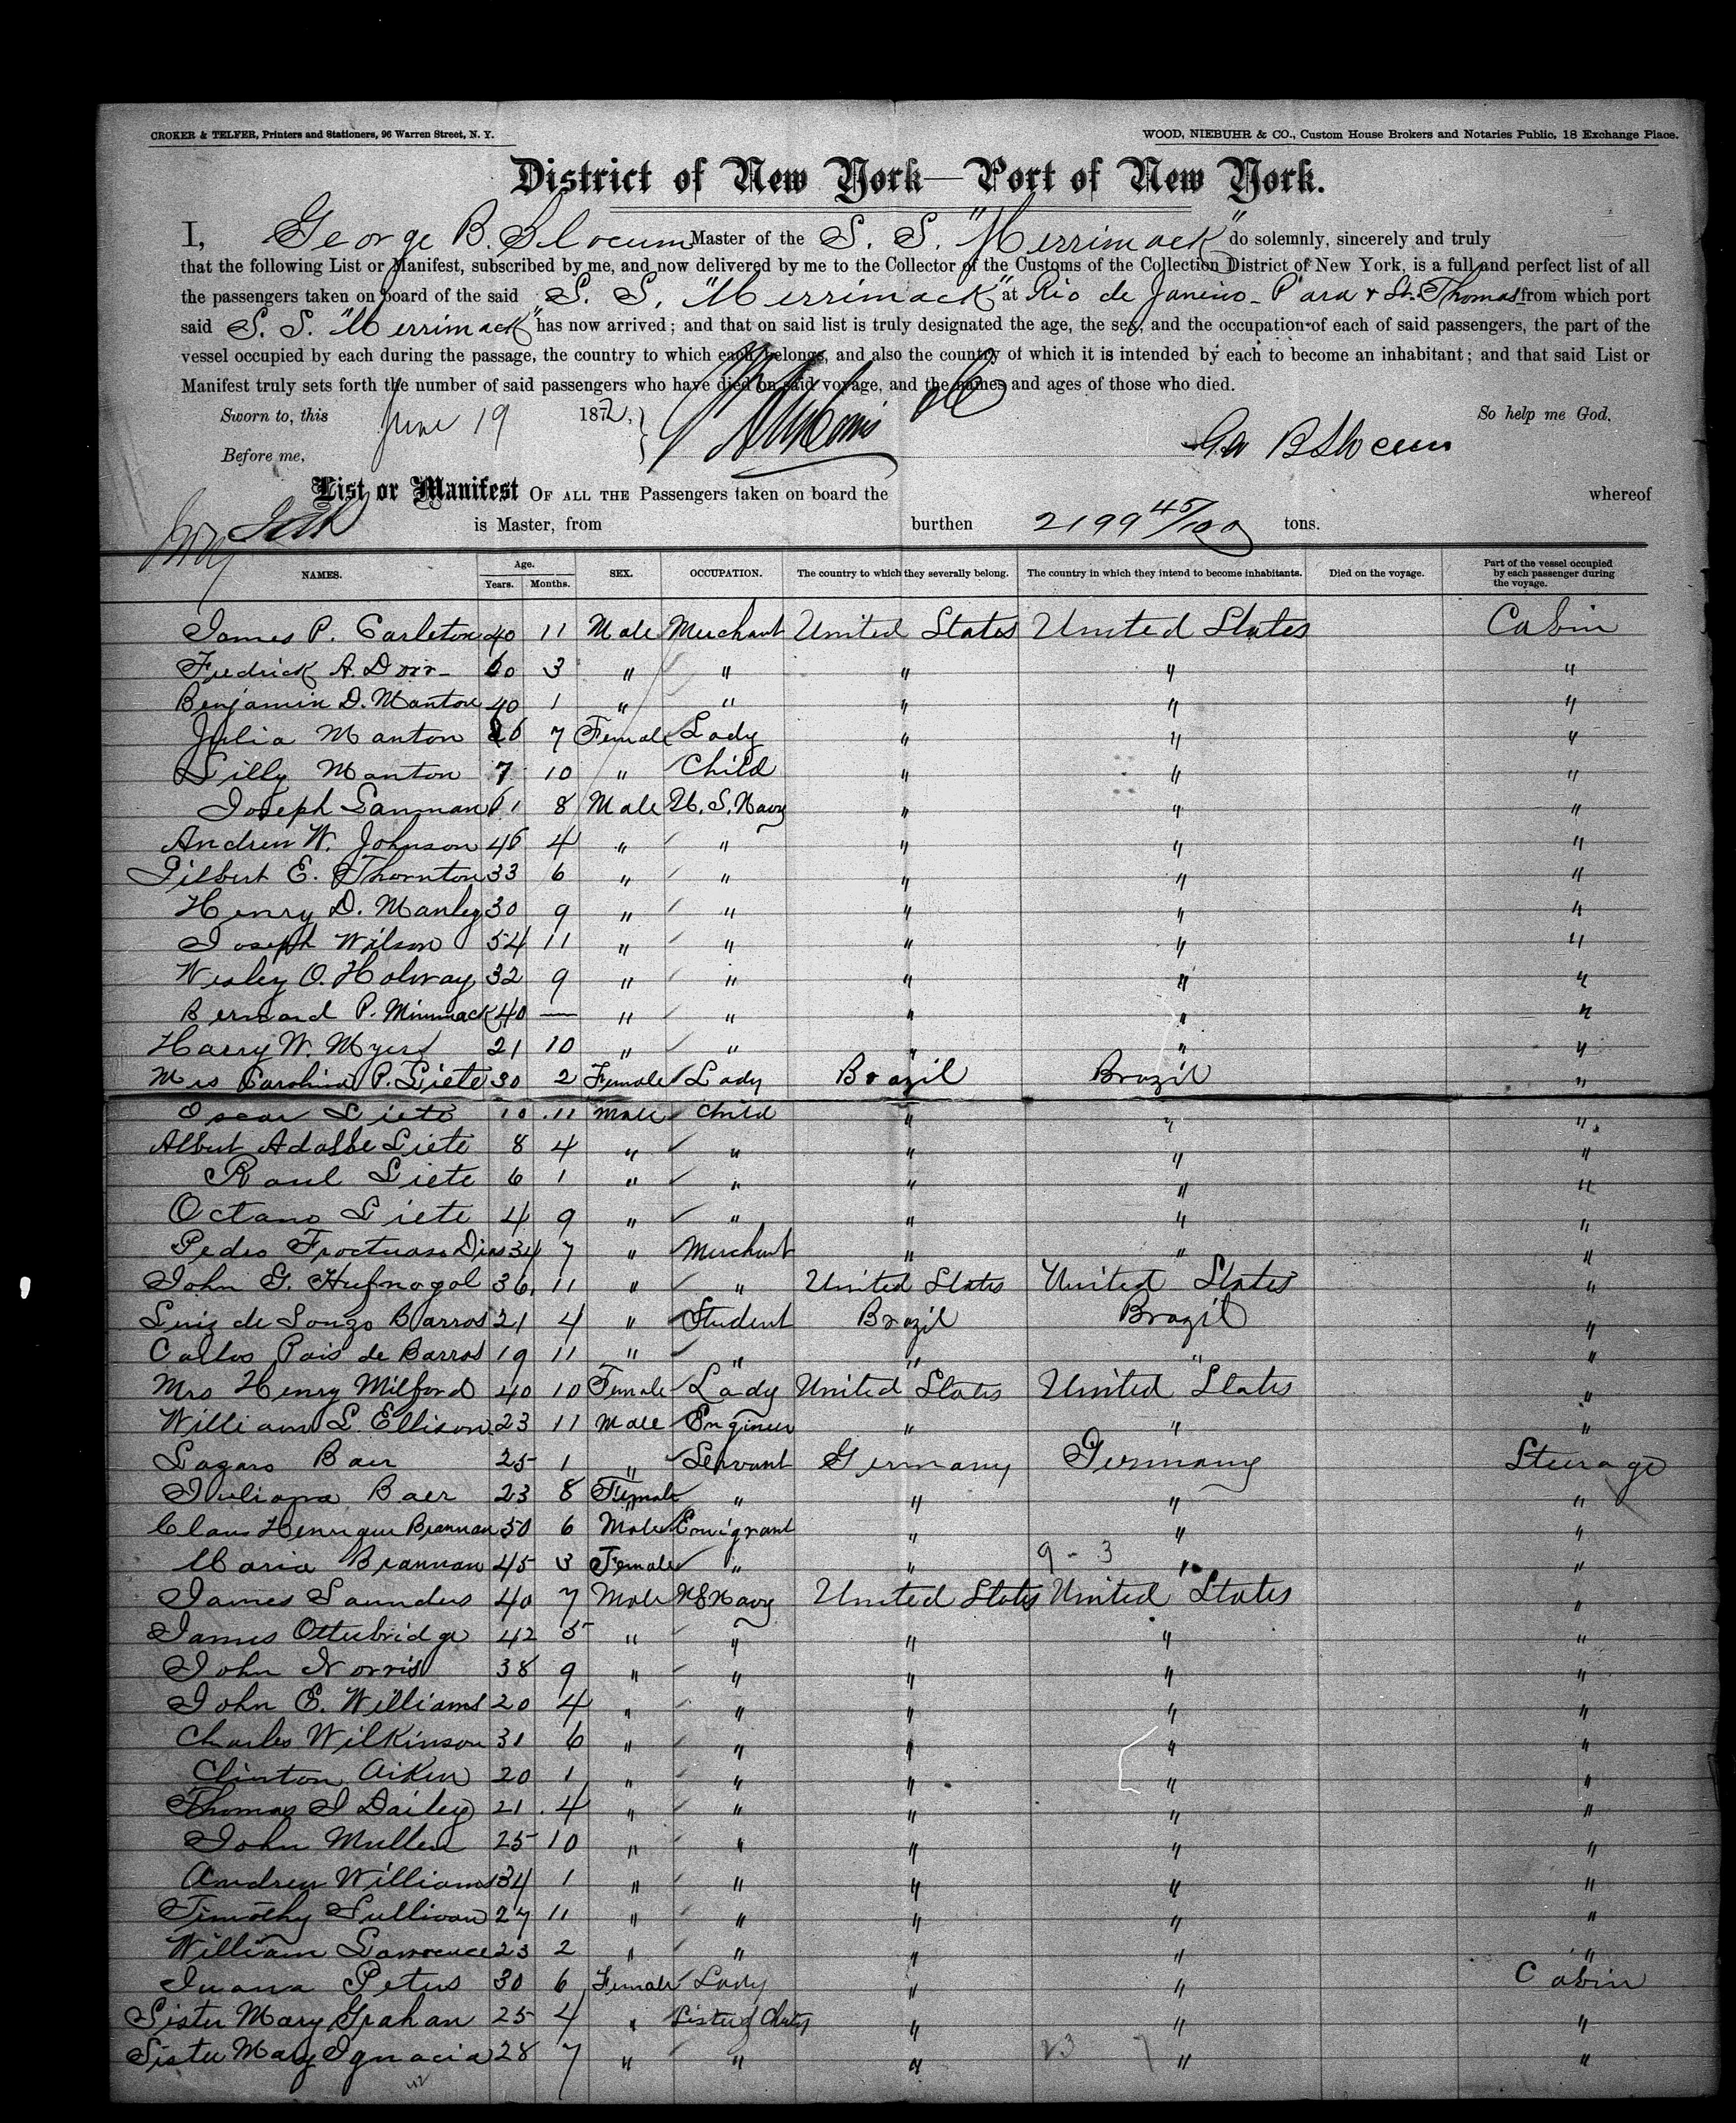 CROKER & TELFER, Printers and Stationers, 96 Warren Street, N. Y.
WOOD, NIEBUHR & CO., Custom House Brokers and Notaries Public, 18 Exchange Place.
District of New York—Port of New York.
I, George B. Slocum Master of the S. S. "Merrimack" do solemnly, sincerely and truly
that the following List or Manifest, subscribed by me, and now delivered by me to the Collector of the Customs of the Collection District of New York, is a full and perfect list of all
the passengers taken on board of the said S. S. "Merrimack" at Rio de Janeiro - Para & St. Thomas from which port
said S. S. "Merrimack" has now arrived; and that on said list is truly designated the age, the sex, and the occupation of each of said passengers, the part of the
vessel occupied by each during the passage, the country to which each belongs, and also the country of which it is intended by each to become an inhabitant; and that said List or
Manifest truly sets forth the number of said passengers who have died on said voyage, and the names and ages of those who died.
Sworn to, this June 19 1872, So help me God.
Before me, Geo B Slocum
List or Manifest OF ALL THE Passengers taken on board the whereof
is Master, from burthen 2199 45/100 tons.
NAMES. Age. Years. Months. SEX. OCCUPATION. The country to which they severally belong. The country in which they intend to become inhabitants. Died on the voyage. Part of the vessel occupied by each passenger during the voyage.
James P. Carleton 40 11 Male Merchant United States United States Cabin
Fredrick A. Dorr 60 3 " " " " "
Benjamin D. Manton 40 1 " " " " "
Julia Manton 26 7 Female Lady " " "
Lilly Manton 7 10 " Child " " "
Joseph Lanman 61 8 Male U. S. Navy " " "
Andrew W. Johnson 46 4 " " " " "
Gilbert E. Thornton 33 6 " " " " "
Henry D. Manley 30 9 " " " " "
Joseph Wilson 54 11 " " " " "
Wesley O. Holway 32 9 " " " " "
Bernard P. Mimmack 40 — " " " " "
Harry W. Myers 21 10 " " " " "
Mrs Carolina P. Liete 30 2 Female Lady Brazil Brazil "
Oscar Liete 10 11 Male Child " " "
Albert Adalbe Liete 8 4 " " " " "
Raul Liete 6 1 " " " " "
Octano Liete 4 9 " " " " "
Pedro Froctuaso Dias 34 7 " Merchant " " "
John G. Hufnagol 36 11 " " United States United States "
Luiz de Souzo Barros 21 4 " Student Brazil Brazil "
Carlos Pais de Barros 19 11 " " " " "
Mrs Henry Milford 40 10 Female Lady United States United States "
William L. Ellison 23 11 Male Engineer " " "
Lazaro Baer 25 1 " Servant Germany Germany Steerage
Juliana Baer 23 8 Female " " " "
Claus Henrique Brannan 50 6 Male Emigrant " " "
Maria Brannan 45 3 Female " " 9 - 3 " "
James Saunders 40 7 Male US Navy United States United States "
James Otterbridge 42 5 " " " " "
John Norris 38 9 " " " " "
John E. Williams 20 4 " " " " "
Charles Wilkinson 31 6 " " " " "
Clinton Aiken 20 1 " " " " "
Thomas J Dailey 21 4 " " " " "
John Mullen 25 10 " " " " "
Andrew Williams 34 1 " " " " "
Timothy Sullivan 27 11 " " " " "
William Lawrence 23 2 " " " " "
Juana Petus 30 6 Female Lady " " Cabin
Sister Mary Grahan 25 4 " Sister of Charity " " "
Sister Mary Ignacia 28 7 " " " 23 7 " "